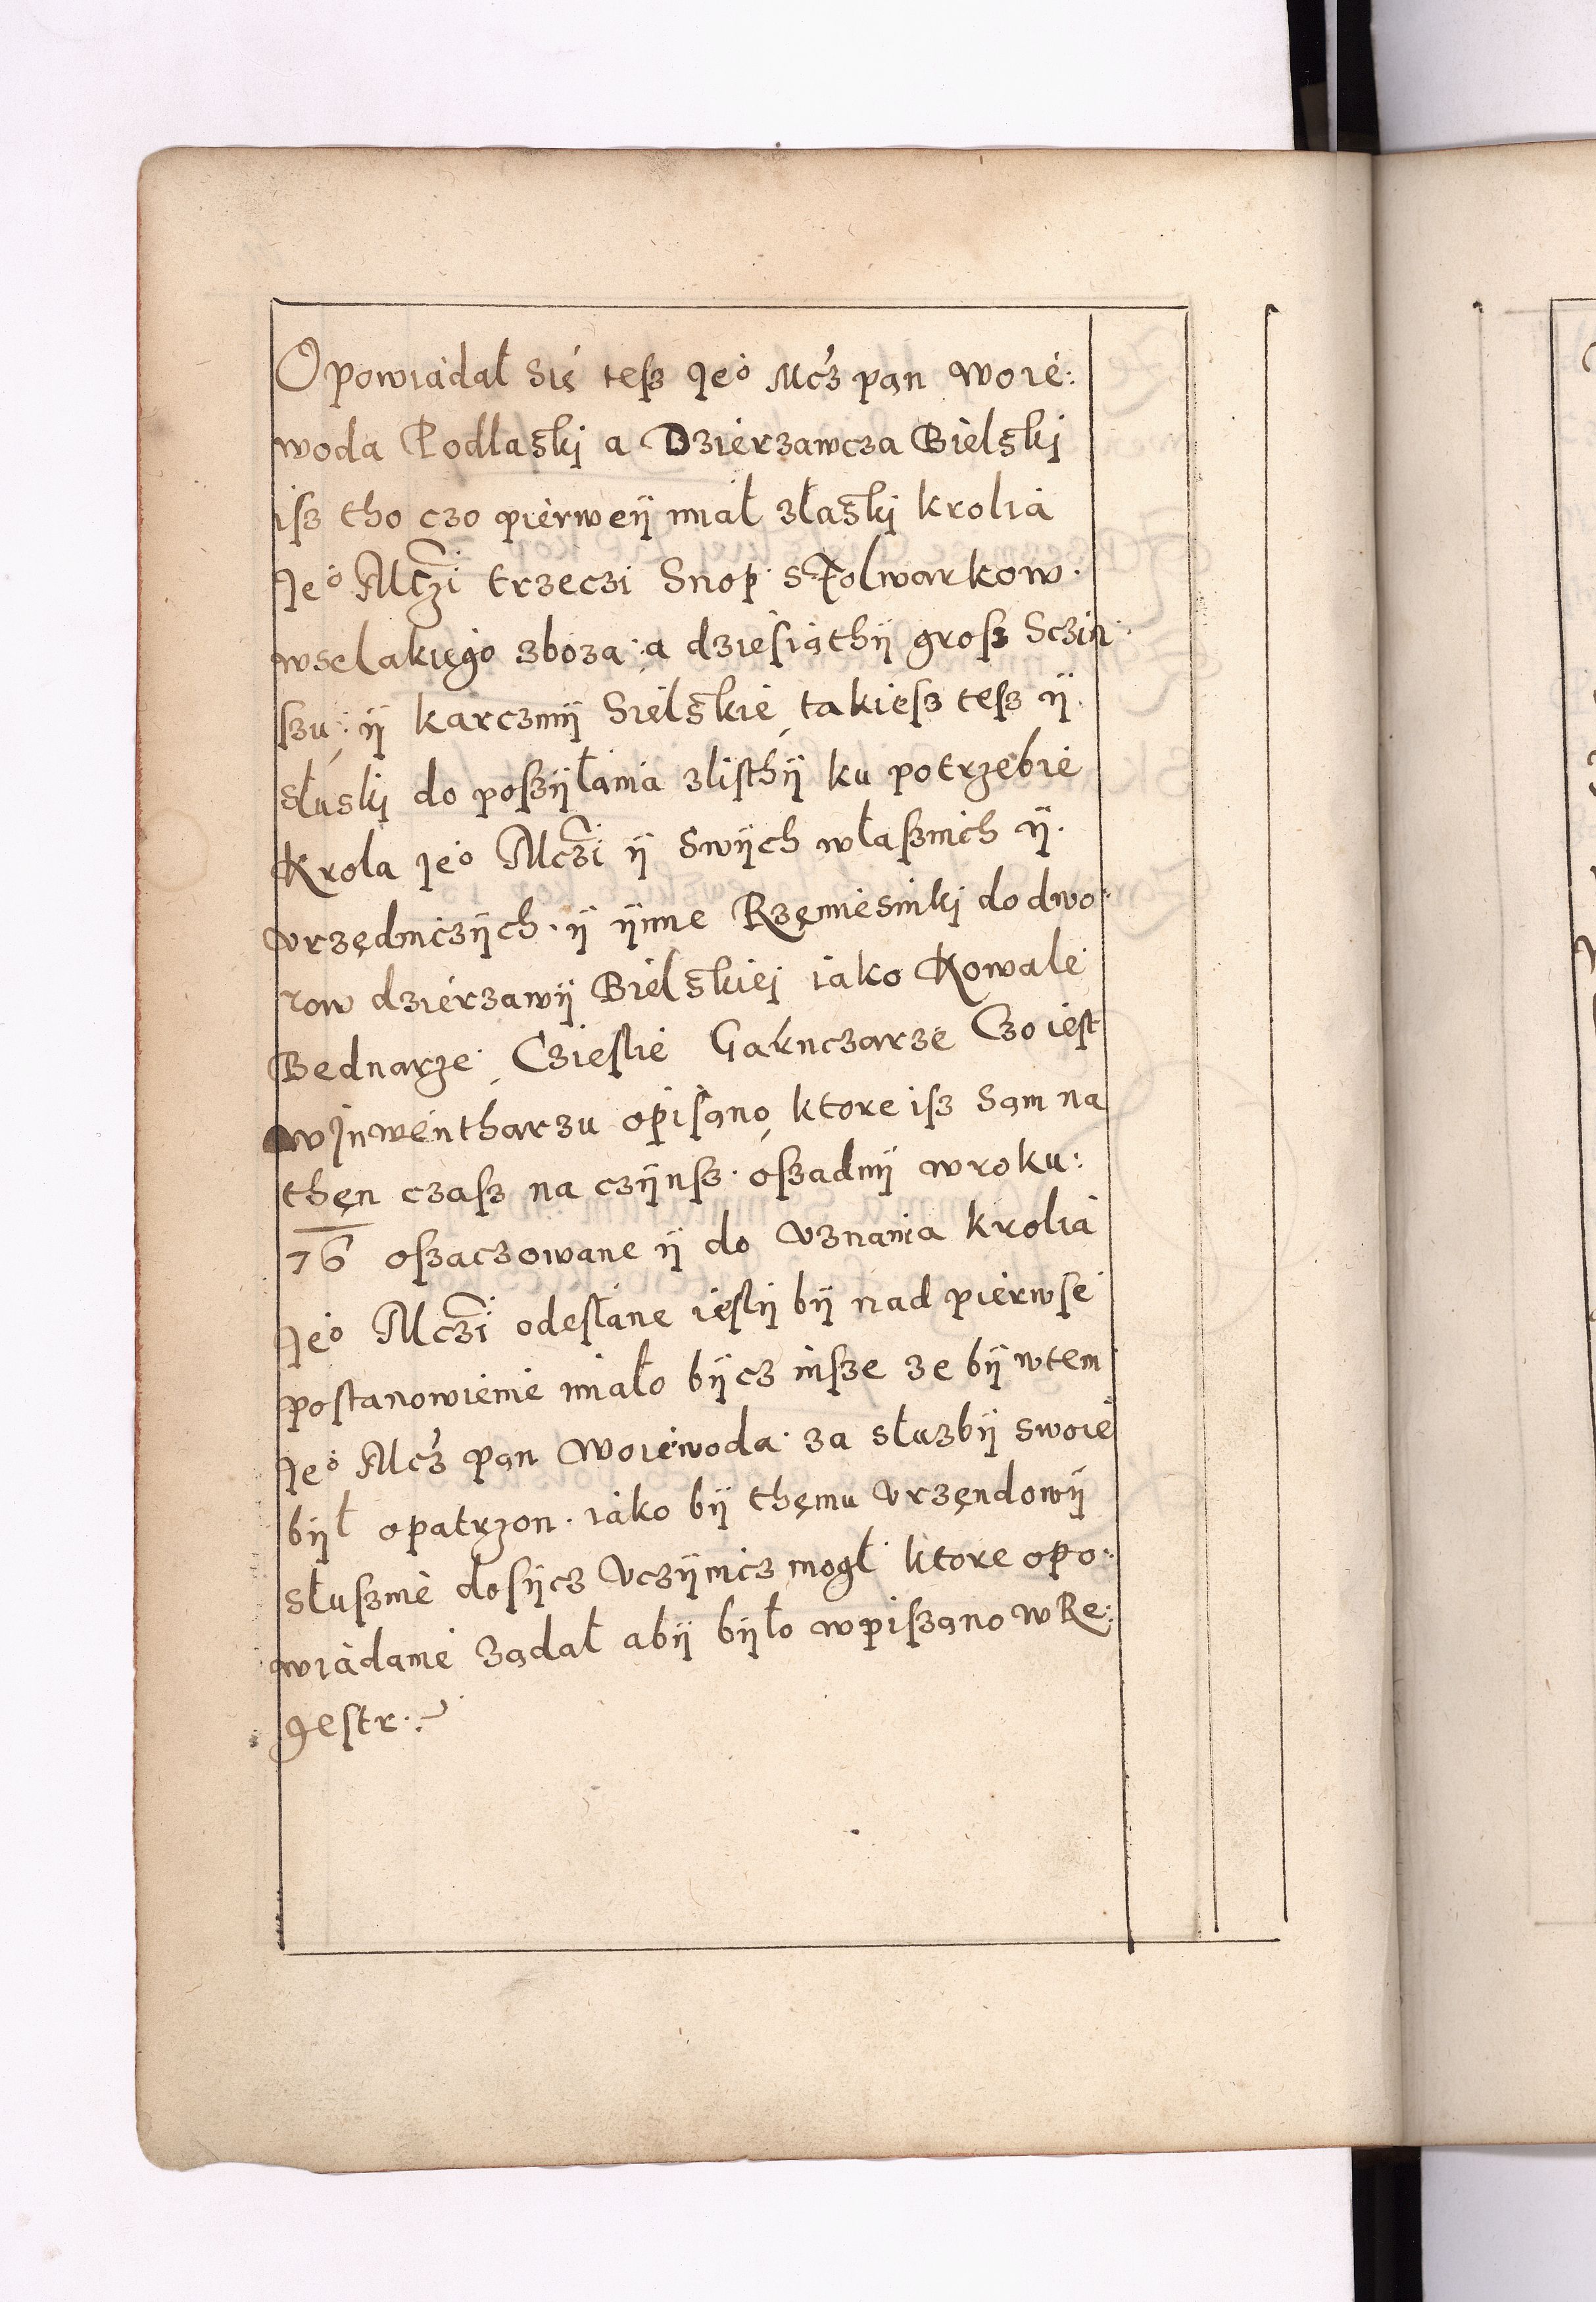 Opowiadał Się tesz Je° Mcz pan woie:
woda Podlaskj a Dzierzawcza Bielskj
isz tho czo pierweÿ miał złaskj krolia
Je° Mczi trzeczi Snop sFolwarkow.
wselakiego zboza a dziesiąthÿ grosz Sczin
szu ÿ karczmÿ Sielskie takiesz tesz ÿ
słuskj do poszÿłania zlisthÿ ku potrzebie
Krola Je° Mczi ÿ Swÿch własznich ÿ
vrzędniczÿch ÿ ÿnne Rzęmiesnikj do dwo
row dzierzawÿ Bielskiej iako Kowale
Bednarze Cziesle Garnczarze Czo iest
wJnwentharzu opisąno ktore isz Sąm na
thęn czasz na czÿnsz oszadnÿ wroku:
76 oszaczowane ÿ do vznania krolia
Je° Mczi odesłane ieslÿ bÿ nad pierwse
postanowienie miało bÿcz insze ze bÿ wtem
Je° Mcz pąn woiewoda za słuzbÿ swoie
bÿł opatrzon iako bÿ thęmu vrzęndowÿ
słusznie dosÿcz vczÿnicz mogł ktore opo:
wiadanie ządał abÿ bÿło wpisząno wRe:
gestr.